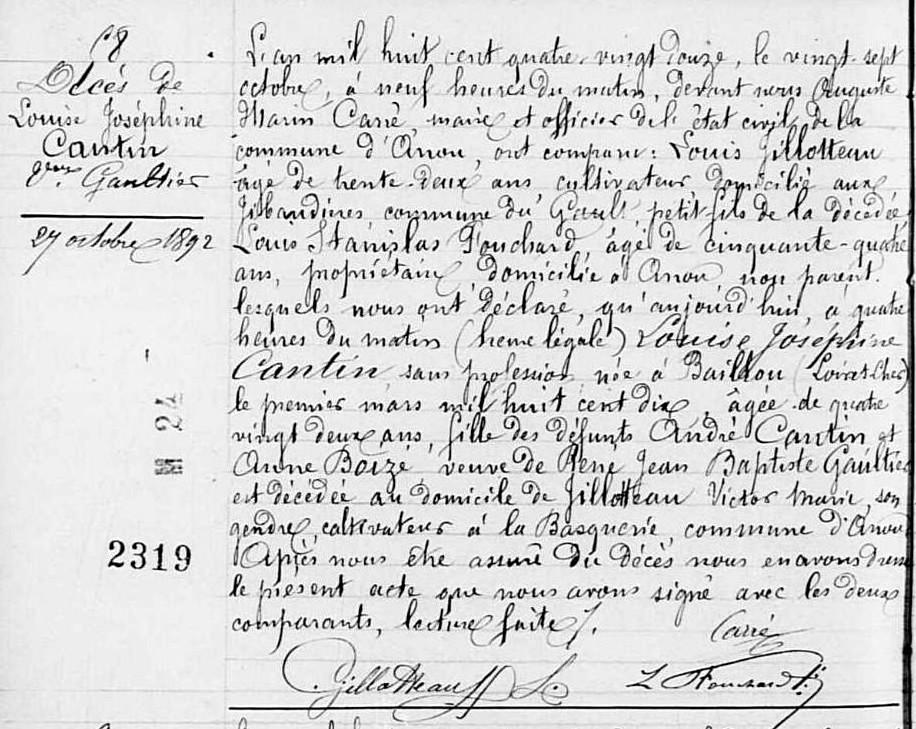 18
Décès de
Louise Joséphine
Cantin
Gaultier
27 octobre 1892
M 24
2319
L'an mil huit cent quatre-vingt douze, le vingt-sept
octobre, à neuf heures du matin, devant nous Auguste
Marin Carré, maire et officier de l'état civil de la
commune d'Arrou, ont comparu : Louis Gillotteau
âgé de trente-deux ans, cultivateur, domicilié aux
commune du Gault, petit fils de la décédée
Louis Stanislas Fouchard, âgé de cinquante-quatre
ans, propriétaire, domicilié à Arrou, non parent.
lesquels nous ont déclaré, qu'aujourd'hui, à quatre
heures du matin (heure légale) Louise Joséphine
Cantin, sans profession, née à Baillou (Loir et Cher)
le premier mars mil huit cent dix, âgée de quatre
vingt deux ans, fille des défunts André Cantin et
Anne Boizé, veuve de René Jean Baptiste Gaultier
est décédée au domicile de Gillotteau Victor Marie, son
gendre, cultivateur à la Basquerie, commune d'Arrou
Après nous être assuré du décès nous en avons dressé
le présent acte que nous avons signé avec les deux
comparants, lecture faite /.
Carré
Gillotteau L.
L Fouchard